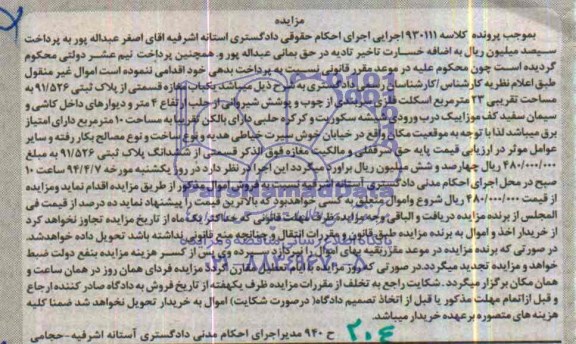 مزایده
بموجب پرونده کلاسه ۹۳۰۱۱۱ اجرایی اجرای احکام حقوقی دادگستری آستانه اشرفیه آقای اصغر عبداله پور به پرداخت
سیصد میلیون ریال به اضافه خسارت تاخیر تادیه در حق یمانی عبداله پور و همچنین پرداخت نیم عشر دولتی محکوم
گردیده است چون محکوم علیه در موعد مقرر قانونی نسبت به پرداخت بدهی خود اقدامی ننموده است اموال غیر منقول
طبق اعلام نظریه کارشناس/کارشناسان رسمی دادگستری به شرح ذیل میباشد. یکباب مغازه قسمتی از پلاک ثبتی ۹۱/۵۲۶ به
مساحت تقریبی ۲۳ مترمربع اسکلت فلزی سربندی از چوب و پوشش شیروانی از حلب ارتفاع ۴ متر و دیوارهای داخل کاشی و
سیمان سفید کف موزاییک درب ورودی شیشه سکوریت و کرکره حلبی دارای بالکن تقریبا به مساحت ۱۰ مترمربع دارای امتیاز
برق میباشد لذا با توجه به موقعیت مکان واقع در خیابان خوش سیرت خیاطی هدیه و نوع ساخت و نوع مصالح بکار رفته و سایر
عوامل موثر در ارزیابی قیمت پایه حق سرقفلی و مالکیت مغازه فوق الذکر قسمتی از ششدانگ پلاک ثبتی ۹۱/۵۲۶ به مبلغ
۴۸۰/۰۰۰/۰۰۰ ریال چهارصد و شش میلیون ریال برآورد میگردد این اجرا در نظر دارد در روز یکشنبه مورخه ۹۴/۴/۷ ساعت ۱۰
صبح در محل اجرای احکام مدنی دادگستری آستانه اشرفیه نسبت به فروش اموال مذکور از طریق مزایده اقدام نماید ومزایده
از قیمت ۴۸۰/۰۰۰/۰۰۰ ریال شروع واموال متعلق به کسی خواهد بود که بالاترین قیمت را پیشنهاد نماید ده درصد از قیمت فی
المجلس از برنده مزایده دریافت و الباقی وجه مزایده ظرف مهلت قانونی که حداکثر یک ماه از تاریخ مزایده تجاوز نخواهد کرد
از خریدار اخذ و اموال به برنده مزایده طبق قانون و مقررات انتقال و چنانچه منع قانونی نداشته باشد تحویل داده خواهدشد.
در صورتی که برنده مزایده در موعد مقرر بقیه بهای اموال را نپردازد سپرده وی پس از کسر هزینه مزایده بنفع دولت ضبط
خواهد و مزایده تجدید میگردد. در صورتی که روز مزایده با ایام تعطیل مقارن گردد مزایده فردای همان روز در همان ساعت و
همان مکان برگزار میگردد. شکایت راجع به تخلف از مقررات مزایده ظرف یکهفته از تاریخ فروش به دادگاه صادر کننده ارجاع
و قبل ازاتمام مهلت مذکور یا قبل از اتخاذ تصمیم دادگاه( درصورت شکایت) اموال به خریدار تحویل نخواهد شد ضمنا کلیه
هزینه های متصوره برعهده خریدار میباشد.
ح ۹۴۰ مدیراجرای احکام مدنی دادگستری آستانه اشرفیه-حجامی
۲۰۴